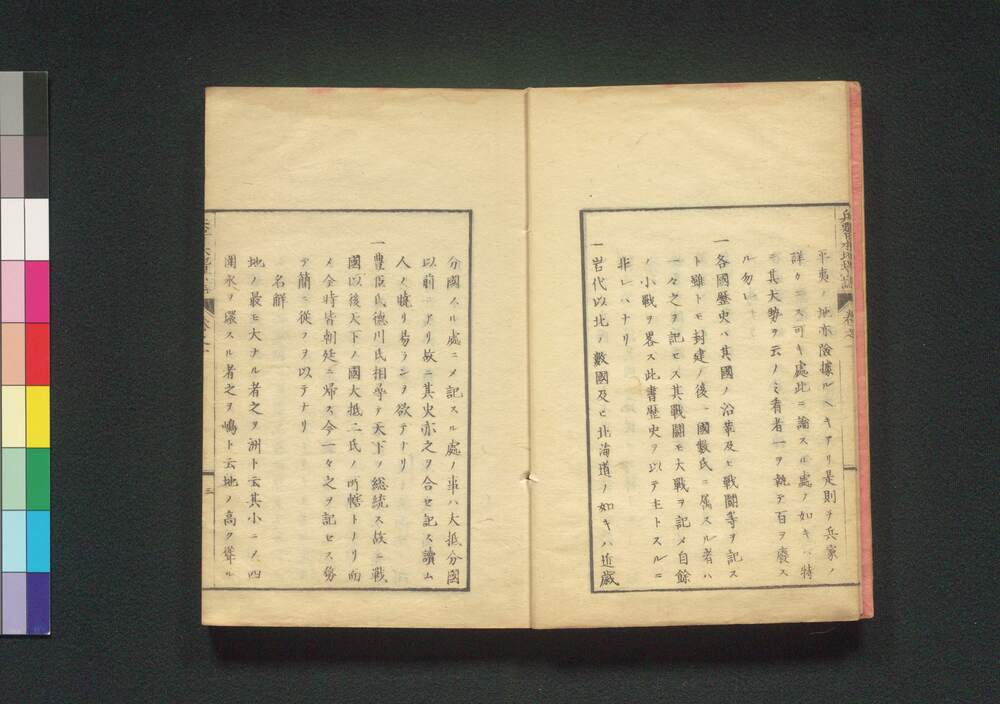 平夷ノ地亦險據ルヘキアリ是則ヲ兵家ノ
詳クニス可キ處此ニ論スル處ノ如キハ特
其大勢ヲ云ノミ看者一ヲ執テ百ヲ廢ス
ル勿レ
一各國歴史ハ其國ノ沿革及ヒ戰闘等ヲ記ス
ト雖トモ封建ノ後一國數氏ニ属スル者ハ
一々之ヲ記セス其戰闘モ大戰ヲ記メ自餘
ノ小戰ヲ畧ス此書歴史ヲ以テ主トスルニ
非レハナリ
一岩代以北ノ數國及ヒ北海道ノ如キハ近歳
分國スル處ニメ記スル處ノ事ハ大抵分國
以前ニアリ故ニ其史亦之ヲ合セ記ス讀ム
人ノ曉リ易ランヲ欲テナリ
一豊臣氏德川氏相尋テ天下ヲ総統ス故ニ戰
國以後天下ノ國大抵二氏ノ所轄トナリ而
メ今時皆朝廷ニ帰ス今一々之ヲ記セス務
テ簡ニ從フヲ以テナリ
名解
地ノ最モ大ナル者之ヲ洲ト云其小ニメ四
圍水ヲ環スル者之ヲ嶋ト云地ノ高ク聳ル
三